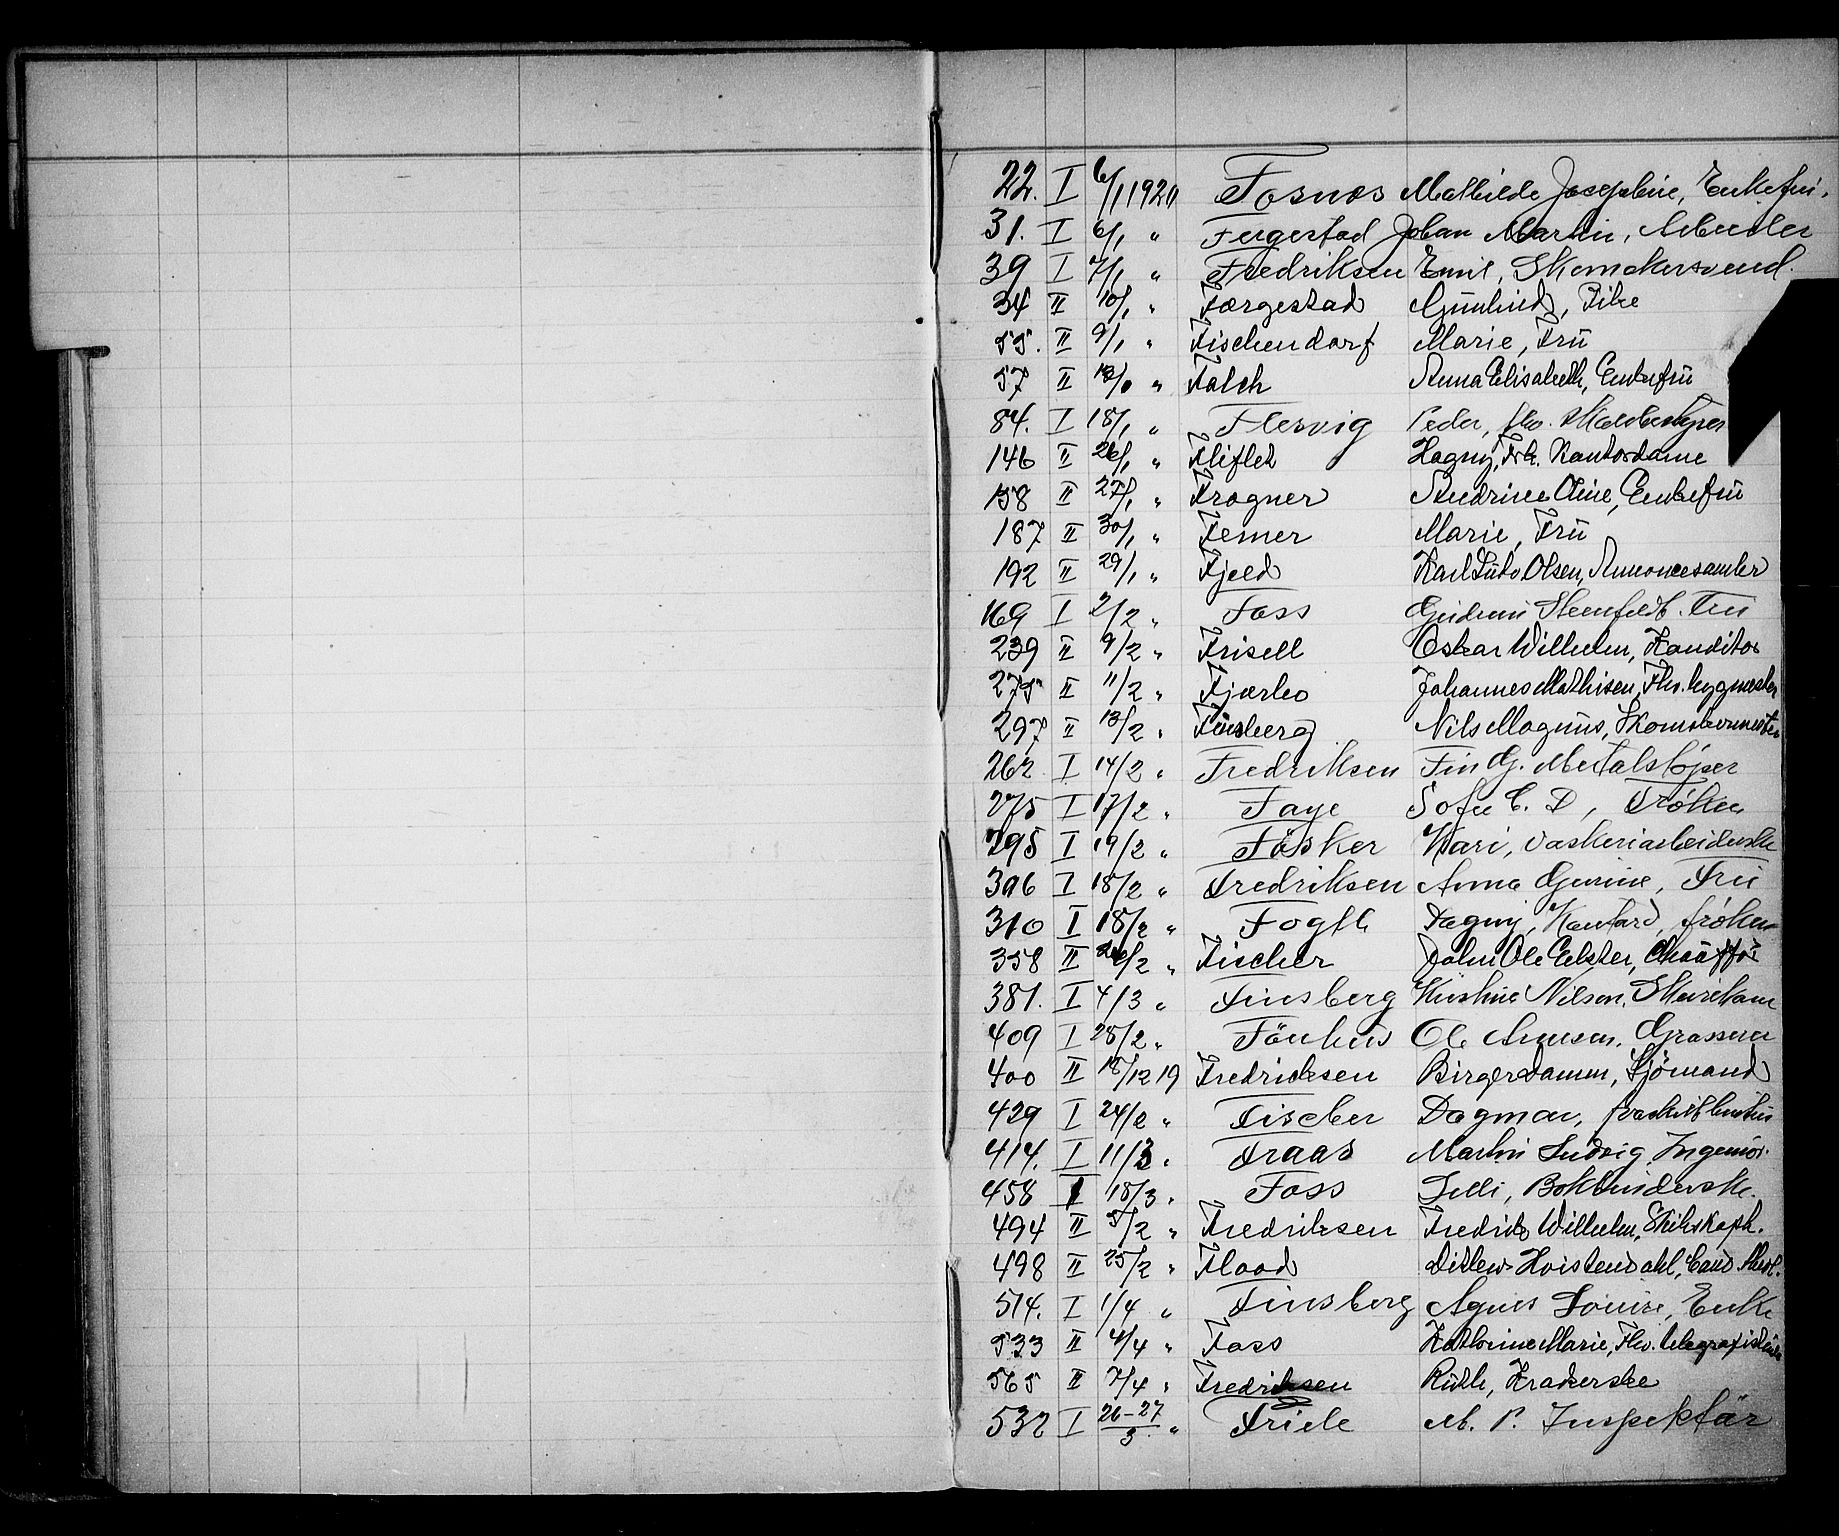 22. I 6/1 1920 Fosnæs Mathilde Josephine, Enkefru.
31. I 6/1 " Fergestad Johan Martin, Arbeider
39 I 7/1 " Fredriksen Emil, Skomakersvend.
34 II 10/1 " Færgestad Gunhild, Pike
55. II 9/1 " Fischendorf Marie, Frü
57 II " Falch Anna Elisabeth, Enkefrü
84. I 18/1 " Flesvig Peder, fhv.
146 II 26/1 " Fliflet Dagny, Frk. Kontordame
158 II 27/1 " Frogner Andrine Oline, Enkefrü
187 II 30/1 " Femer Marie, Frü
192 II 29/1 " Fjeld Karl Olsen, Annoncesamler
169 I 2/2 " Foss Gudrun Steenfeldt. Fru
239 II 9/2 " Frisell Oskar Wilhelm, Konditor
275 II 11/2 " Fjærbo Johannes Mathisen, Fhv. bygmester
297 II 13/2 " Finsberg Nils Magnus, Skomakermester
262 I 14/2 " Fredriksen Fin G. Metalstøper
275 I 17/2 " Faye Sofie C. D, Frøken
295 I 19/2 " Fösker Kari, vaskeriarbeiderske
306 I 18/2 " Fredriksen Anna Gurine, Frü
310 I 18/2 " Fogth Dagny, Kontord, frøken
358 II 26/2 " Fischer John Ole Elster, Chaufför
381. I 4/3 " Finsberg Kirstine Nilsen,
409 I 28/2 " Fönhus Ole Arnesen, Grosserer
400 II 18/12 19 Fredriksen Birger Damm, Sjömand
429 I 24/2 " Fischer Dagmar, fraskilt hustru
414. I 11/3 " Fraas Martin Ludvig, Ingeniør.
458 I 18/3 " Foss Lilli, Bokbinderske.
494 II 5/2 " Fredriksen Fredrik Wilhelm, Skibskapt.
498 II 25/2 " Flood Ditlev Hvistendahl, Cand. theol.
514. I 1/4 " Finsberg Agnes Louise, Enke
533 II 4/4 " Foss Kathrine Marie, Fhv. telegrafistinde
565 II 7/4 " Fredriksen Ruth,
532 I 26-27/3 " Friele M. P. Inspektör